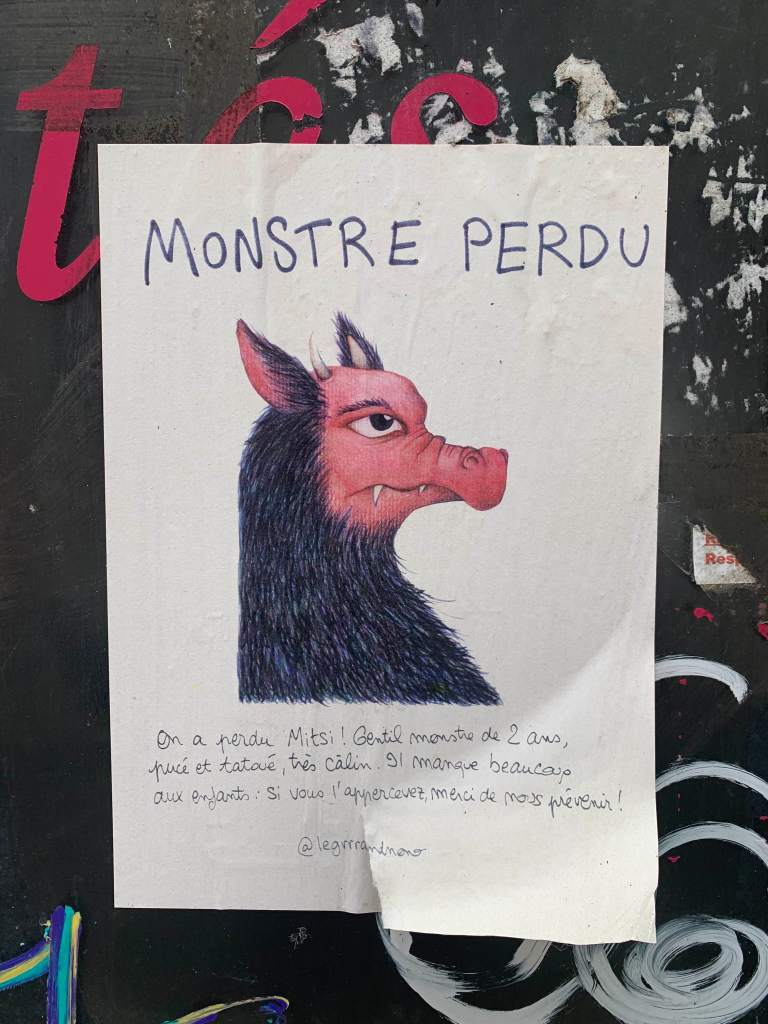 tós
MONSTRE PERDU
R
Resp
On a perdu Mitsi ! Gentil monstre de 2 ans,
pucé et tatoué, très câlin. Il manque beaucoup
aux enfants : si vous l'appercevez, merci de nous prévenir !
@legrrrandnono